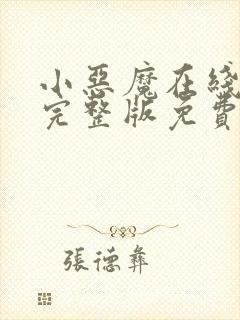 小惡魔在綫
完整版免費
張德彝